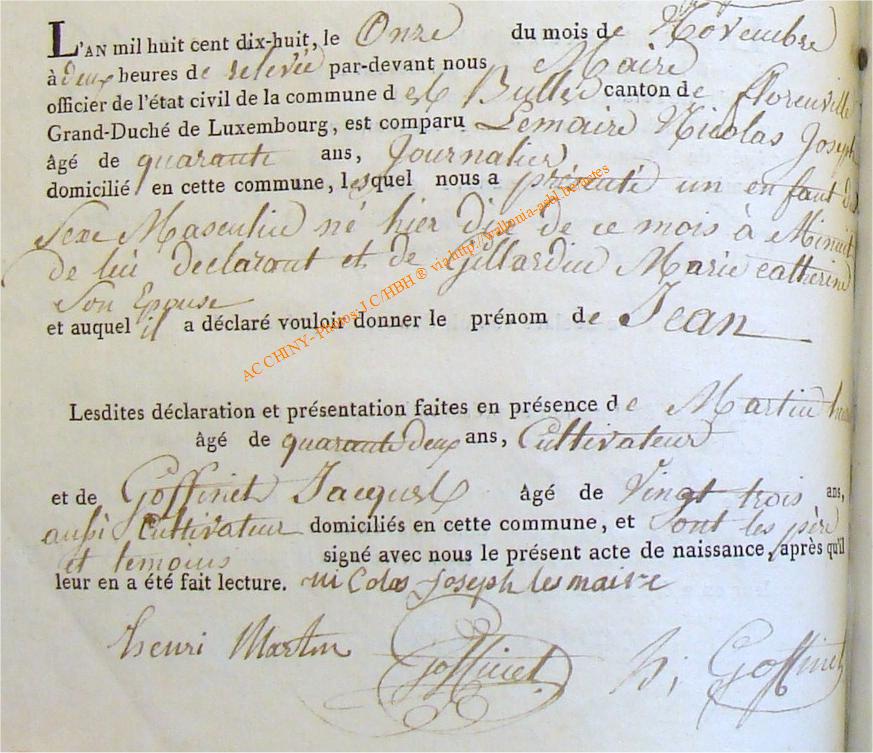 L'AN mil huit cent dix-huit, le Onze du mois de Novembre
à deux heures de relevée par-devant nous Maire
officier de l'état civil de la commune d canton de florenville
Grand-Duché de Luxembourg, est comparu Lemaire Nicolas Joseph
âgé de quarante ans, Journalier
domicilié en cette commune, lesquel nous a présenté un enfant du
Sexe Masculin né hier dix de ce mois à Minuit
de lui declarant et de Gillardin Marie catherine
Son Epouse
et auquel il a déclaré vouloir donner le prénom de Jean
ACCHINY-Photos J.C/HBH® via http://wallonia-asbl.be/actes
Lesdites déclaration et présentation faites en présence de Martin
âgé de quarante deux ans, Cultivateur
et de Goffinet Jacques âgé de Vingt trois ans,
aussi Cultivateur domiciliés en cette commune, et sont les père
et temoins signé avec nous le présent acte de naissance, après qu'il
leur en a été fait lecture. nicolas joseph lesmaire
henri Martin
Goffinet
Goffinet